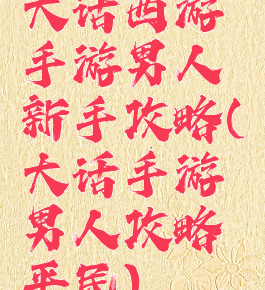 大话西游
手游男人
新手攻略(
大话手游
男人攻略
平民)